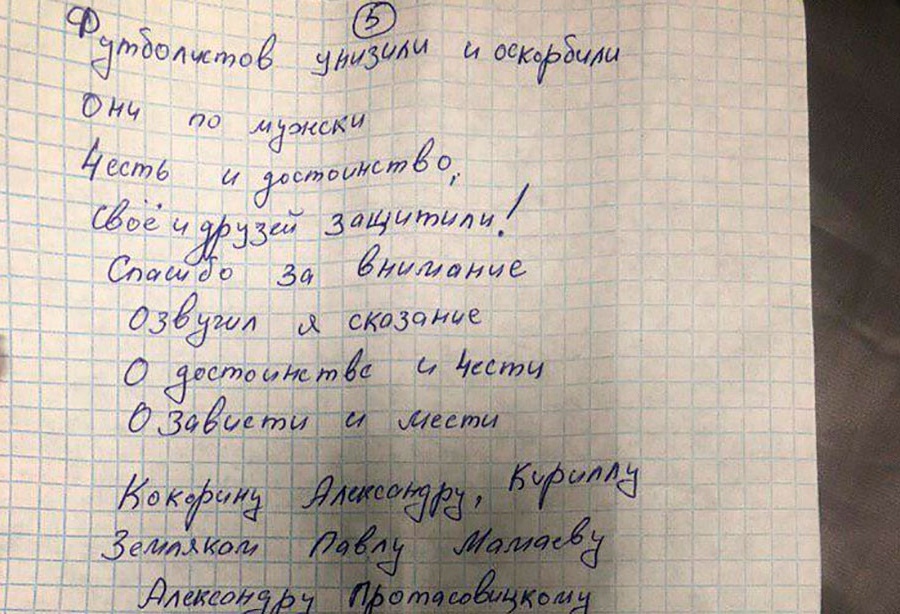 5
Футболистов унизили и оскорбили
Они по мужски
Честь и достоинство,
Своё и друзей защитили!
Спасибо за внимание
Озвучил я сказание
О достоинстве и чести
О зависти и мести
Кокорину Александру, Кириллу
Земляком Павлу Мамаеву
Александру Протасовицкому